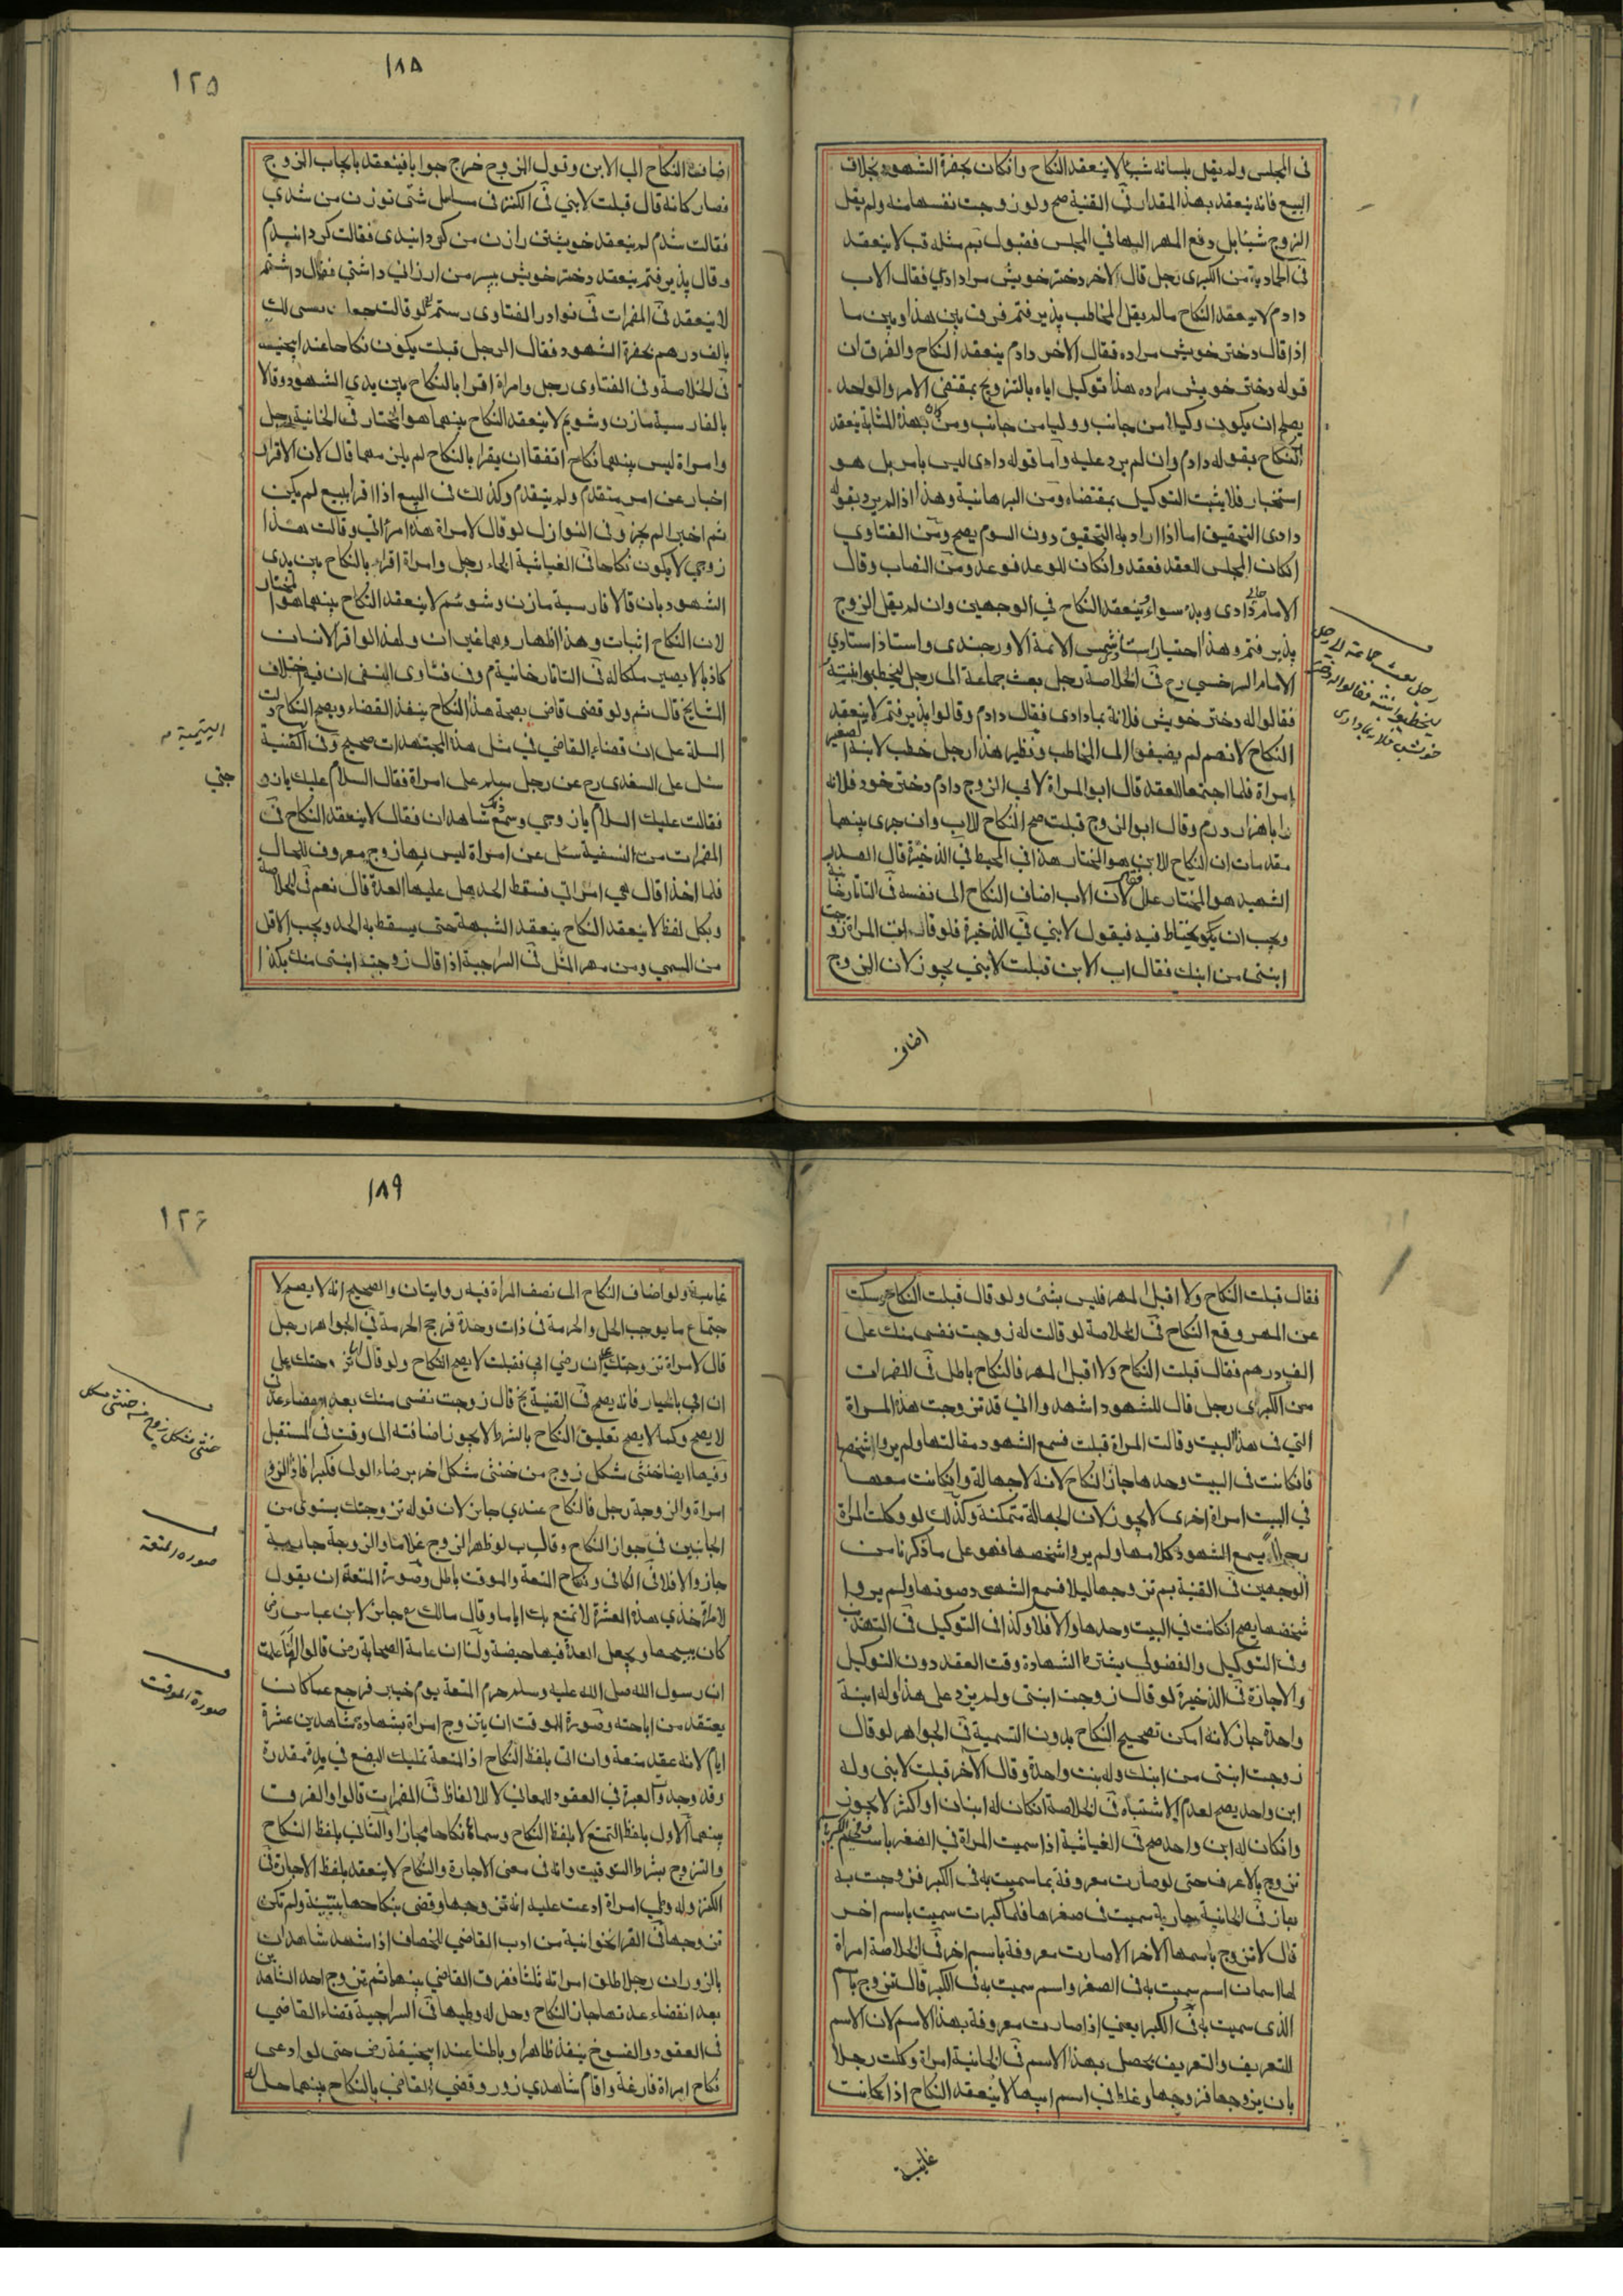 في المجلس ولم يقل بلسانه شيئا لا ينعقد النكاح وانكان بحضرة الشهود بخلاف
البيع فانه ينعقد بهذا المقدار في القنية صح ولو زوجت نفسها منه ولم يقل
الزوج شيئا بل دفع المهر اليها في المجلس فقبول ثم مثله قب لا ينعقد
في الحاوية من الكبرى رجل قال لاخر دختر خويش مرا دادي فقال الاب
دادم لا ينعقد النكاح مالم يقل المخاطب پذيرفتم فرق بين هذا وبين ما
اذا قال دختر خويش مرا ده فقال الاخر دادم ينعقد النكاح والفرق ان
قوله دختر خويش مرا ده هذا توكيل اياه بالتزويج بمقتضى الامر والواحد
يصلح ان يكون وكيلا من جانب ووليا من جانب ومن بهذا المثابة ينعقد
النكاح بقوله دادم وان لم يزد عليه واما قوله دادى ليس بامر بل هو
استخبار فلا يثبت التوكيل بمقتضاه ومن البرهانية وهذا اذا لم يرد بقوله
دادى التحقيق اما اذا اراد به التحقيق دون السوم يصح ومن الفتاوي
انكان المجلس للعقد فعقد وانكان للوعد فوعد ومن النصاب وقال
الامام دادى وبد سواء ينعقد النكاح في الوجهين وان لم يقل الزوج
پذيرفتم وهذا اختيار استاذ شمس الائمة الاورجندى واستاذ استاذي
الامام السرخسي رح في الخلاصة رجل بعث جماعة الى رجل ليخطبوا ابنته
فقالوا له دختر خويش فلانة بما دادى فقال دادم وقالوا پذيرفتم لا ينعقد
النكاح لانهم لم يضيفوا الى المخاطب ونظير هذا رجل خطب لابنه الصغير
امراة فلما اجتمعا للعقد قال ابو المراة لابي الزوج دادم دختر خود فلانه
را با هزار درم وقال ابو الزوج قبلت صح النكاح للاب وان جرى بينهما
مقدمات ان النكاح للابن هو المختار هذا في المحيط في الذخيرة قال الصدر
الشهيد هو المختار علل لان الاب اضاف النكاح الى نفسه في التاتارخانية
ويجب ان يحتاط فيه فيقول لابني في الذخيرة فلو قال اب المراة زوجت
ابنتى من ابنك فقال اب الابن قبلت لابني يجوز لان الزوج
اضاف
رجل بعث جماعة الى رجل
ليخطبوا ابنته فقالوا له دختر
خويش فلانة بما دادى
١٨٥
١٢٥
اضاف النكاح الى الابن وقول الزوج خرج جوابا فينعقد بايجاب الزوج
فصار كانه قال قبلت لابني في الكنز في مسايل شتى توزن من شدي
فقالت شدم لم ينعقد خويشتن را زن من كردانيدى فقالت كردانيدم
وقال پذيرفتم ينعقد دختر خويش بپسر من ارزاني داشتي فقال داشتم
لا ينعقد في المضمرات في نوادر الفتاوى رستم لو قالت جعلت نفسى لك
بالف درهم بحضرة الشهود فقال الرجل قبلت يكون نكاحا عند ابيحنيفة
في الخلاصة وفي الفتاوى رجل وامراة اقرا بالنكاح بين يدي الشهود وقالا
بالفارسية مازن وشويم لا ينعقد النكاح بينهما هو المختار في الخانية رجل
وامراة ليس بينهما نكاح اتفقا ان يقرا بالنكاح لم يلزمهما قال لان الاقرار
اخبار عن امر متقدم ولم يتقدم وكذلك في البيع اذا اقرا ببيع لم يكن
ثم اخبرا لم يجز وفي النوازل لو قال لامراة هذه امراتي وقالت هذا
زوجي لا يكون نكاحا في الغياثية رجل وامراة اقرا بالنكاح بين يدى
الشهود بان قالا فارسية مازن وشوئيم لا ينعقد النكاح بينهما هو المختار
لان النكاح اثبات وهذا اظهار وهما غيران ولهذا لو اقر لانسان
كاذبا لا يصير ملكا له في التاتارخانية م وفي فتاوى النسفي ان فيه اختلاف
المشايخ قال ثم ولو قضى قاض بصحة هذا النكاح ينفذ القضاء ويصح النكاح دلت
المسئلة على ان قضاء القاضي في مثل هذه المجتهدات صحيح وفي القنية
سئل على السغدى رح عن رجل سلم على امراة فقال السلام عليك يا زوجتي
فقالت عليك السلام يا زوجي وسمع ذلك شاهدان فقال لا ينعقد النكاح في
المضمرات من النسفية سئل عن امراة ليس بها زوج معروف للحال
فلما اخذا قال هي امراتي فسقط الحد هل عليها العدة قال نعم في الخلاصة
وبكل لفظ لا ينعقد النكاح ينعقد الشبهة حتى يسقط به الحد ويجب الاقل
من المسمى ومن مهر المثل في السراجية اذا قال زوجت ابنتى منك بكذا
اليتيمية م
جتي
فقال قبلت النكاح ولا اقبل المهر فليس بشئ ولو قال قبلت النكاح وسكت
عن المهر وقع النكاح في الخلاصة لو قالت له زوجت نفسى منك على
الف درهم فقال قبلت النكاح ولا اقبل المهر فالنكاح باطل في المضمرات
من الكبرى رجل قال للشهود اشهدوا اني قد تزوجت هذه المراة
التي في هذا البيت وقالت المراة قبلت فسمع الشهود مقالتها ولم يروا شخصها
فانكانت في البيت وحدها جاز النكاح لانه لا جهالة وانكانت معها
في البيت امراة اخرى لا يجوز لان الجهالة متمكنة وكذلك لو وكلت المراة
رجلا يسمع الشهود كلامها ولم يروا شخصها فهو على ما ذكرنا من
الوجهين في القنية بم تزوجها ليلا فسمع الشهود صوتها ولم يروا
شخصها يصح انكانت في البيت وحدها والا فلا وكذا في التوكيل في التهذيب
وفي التوكيل والفضولي يشترط الشهادة وقت العقد دون التوكيل
والاجازة في الذخيرة لو قال زوجت ابنتى ولم يزد على هذا وله ابنة
واحدة جاز لانه امكن تصحيح النكاح بدون التسمية في الجواهر لو قال
زوجت ابنتى من ابنك وله بنت واحدة وقال الآخر قبلت لابنى وله
ابن واحد يصح لعدم الاشتباه في الخلاصة انكان له ابنان او اكثر لا يجوز
وانكان له ابن واحد صح في الغياثية اذا سميت المراة في الصغر باسم
تزوج بالاعرف حتى لو صارت معروفة بما سميت به في الكبر فزوجت به
جاز في الخانية جارية سميت في صغرها فلما كبرت سميت باسم اخر
قال لا تزوج باسمها الآخر الا صارت معروفة باسم اخر في الخلاصة امراة
لها اسمان اسم سميت به في الصغر واسم سميت به في الكبر قال تزوج باسم
الذى سميت به في الكبر يعني اذا صارت معروفة بهذا الاسم لان الاسم
للتعريف والتعريف يحصل بهذا الاسم في الخانية امراة وكلت رجلا
بان يزوجها فزوجها وغلط في اسم ابيها لا ينعقد النكاح اذا كانت
غايبة
١٨٩
١٢٦
غايبة ولو اضاف النكاح الى نصف المراة فيه روايتان والصحيح انه لا يصح لا
جتماع ما يوجب الحل والحرمة في ذات وحدة فرجح الحرمة في الجواهر رجل
قال لامراة تزوجتك على ان رضي ابي فقبلت لا يصح النكاح ولو قال تزوجتك على
ان ابي بالخيار فانه يصح في القنية بخ قال زوجت نفسى منك بعد انقضاء عدتي
لا يصح وكما لا يصح تعليق النكاح بالشرط لا يجوز اضافته الى وقت في المستقبل
وفيها ايضا خنثى مشكل زوج من خنثى مشكل اخر برضاء الولي فكبرا فاذا الزوج
امراة والزوجة رجل فالنكاح عندي جايز لان قوله تزوجتك يستوى من
الجانبين في جواز النكاح وقال ب لو ظهر الزوج غلاما والزوجة جارية
جاز والا فلا في الكافي ونكاح المتعة والموقت باطل وصورة المتعة ان يقول
لامراة خذي هذه العشرة لاتمتع بك اياما وقال مالك رح جايز لابن عباس رض
كان يبيحها ويجعل العدة فيها حيضة ولنا ان عامة الصحابة رض قالوا
ان رسول الله صلى الله عليه وسلم حرم المتعة يوم خيبر فرجع عما كان
يعتقد من اباحته وصورة الموقت ان يتزوج امراة بشهادة شاهدين عشرة
ايام لانه عقد متعة وان اتى بلفظ النكاح اذ المتعة تمليك البضع في مدة مقدرة
وقد وجد والعبرة في العقود للمعاني لا للالفاظ في المضمرات قالوا والفرق
بينهما الاول بلفظ التمتع لا بلفظ النكاح وسماه نكاحا مجازا والثاني بلفظ النكاح
والتزوج بشرط التوقيت وانه في معنى الاجارة والنكاح لا ينعقد بلفظ الاجارة في
الكنز وله وطي امراة ادعت عليه انه تزوجها وقضى بنكاحها ببينة ولم تكن
تزوجها في القراخوانية من ادب القاضي للخصاف اذا شهد شاهدان
بالزور ان رجلا طلق امراته ثلثا ففرق القاضي بينهما ثم تزوج احد الشاهدين
بعد انقضاء عدتها جاز النكاح وحل له وطيها في السراجية قضاء القاضي
في العقود والفسوخ ينفذ ظاهرا وباطنا عند ابيحنيفة رض حتى لو ادعى
نكاح امراة فارغة واقام شاهدي زور وقضى القاضي بالنكاح بينهما حل له
خنثى مشكل زوج من خنثى مشكل
صورة المتعة
صورة الموقت